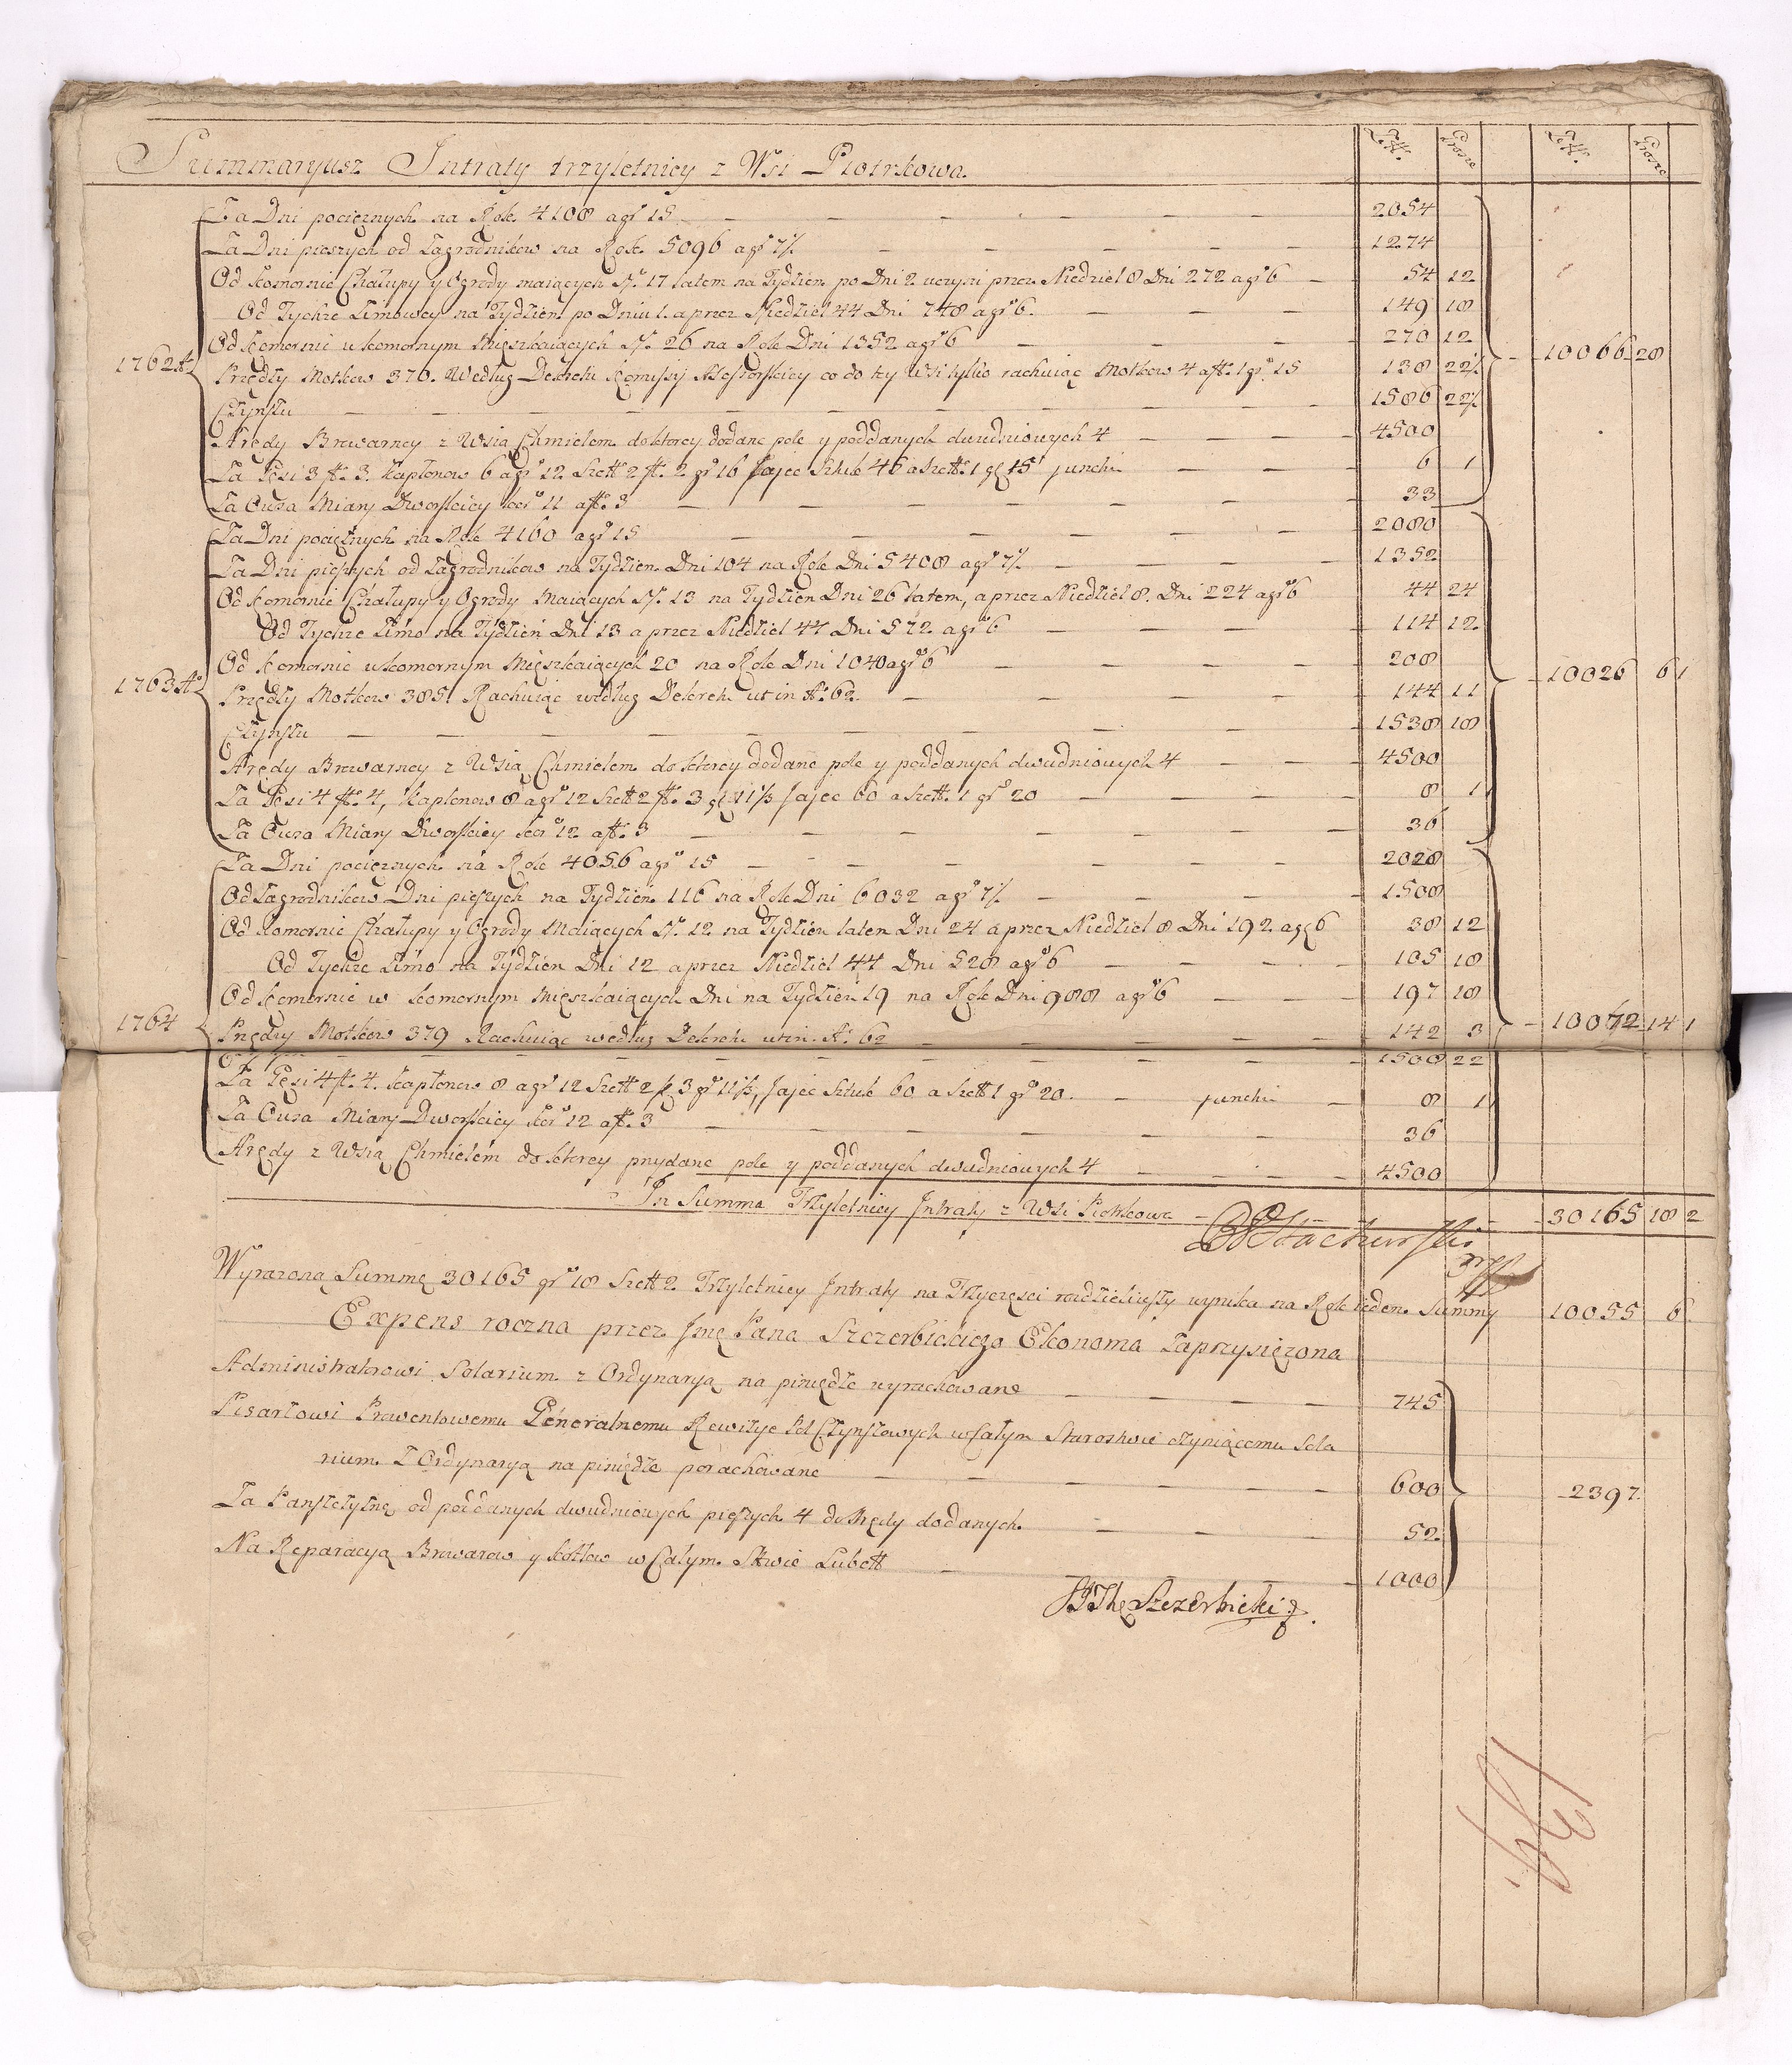 Złt. Grosze Złt. Grosze
Summaryusz Intraty trzyletniey z Wsi Piotrkowa
Za Dni pociężnych na Rok 4108 a gr 15 — 2054
Za Dni pieszych od Zagrodnikow na Rok 5096 a gr 7½ — 1274
Od Komornic Chałupy y Ogrody maiących N. 17 latem na Tydzien po Dni 2 uczyni przez Niedziel 8 Dni 272 a gr 6 — 54 12
Od Tychże Zimowey na Tydzien po Dniu 1. a przez Niedziel 44 Dni 748 a gr 6. — 149 18
Od Komornic w komornym Mięszkaiących N. 26 na Rok Dni 1352 a gr 6 — 270 12
1762 A. Przędzy Motkow 370. Według Dekretu Komissyi Assessorskiey co do tey Wsi tylko rachuiąc Motkow 4 a ft. 1 gr. 15 — 138 22½ — 10066 28
Czynszu — 1586 22½
Arędy Browarney z Wsią Chmielem do ktorey dodane pole y poddanych dwudniowych 4 — 4500
Za Gęsi 3 ft. 3. Kapłonow 6 a gr 12 Szelt 2 ft. 2 gr 16 Jajec Sztuk 45 a Szelt. 1 gr 15 junctim — 6 1
Za Owsa Miary Dworskiey kor 11 a ft. 3 — 33
Za Dni pociężnych na Rok 4160 a gr 15 — 2080
Za Dni pieszych od Zagrodnikow na Tydzien Dni 104 na Rok Dni 5408 a gr 7½ — 1352
Od Komornic Chałupy y Ogrody Maiących N. 13 na Tydzien Dni 26 latem, a przez Niedziel 8. Dni 224 a gr 6 — 44 24
Od Tychże Zimo na Tydzień Dni 13 a przez Niedziel 44 Dni 572 a gr 6 — 114 12
Od Komornic w komornym Mięszkaiących 20 na Rok Dni 1040 a gr 6 — 208
1763 A. Przędzy Motkow 385 Rachuiąc według Dekretu ut in A. 62. — 144 11 — 10026 6 1
Czynszu — 1538 18
Arędy Browarney z Wsią Chmielem do ktorey dodane pole y poddanych dwudniowych 4 — 4500
Za Gęsi 4 ft. 4, Kapłonow 8 a gr 12 Szelt 2 ft. 3 gr 11⅓ Jajec 60 a Szelt. 1 gr 20 — 8 1
Za Owsa Miary Dworskiey kor 12 a ft. 3 — 36
Za Dni pociężnych na Rok 4056 a gr 15 — 2028
Od Zagrodnikow Dni pieszych na Tydzien 116 na Rok Dni 6032 a gr 7½ — 1508
Od Komornic Chałupy y Ogrody Maiących N. 12 na Tydzien latem Dni 24 a przez Niedziel 8 Dni 192 a gr 6 38 12
Od Tychże Zimo na Tydzien Dni 12 a przez Niedziel 44 Dni 528 a gr 6 — 105 18
Od Komornic w komornym Mięszkaiących Dni na Tydzień 19 na Rok Dni 988 a gr 6 — 197 18
1764 Przędzy Motkow 379 Rachuiąc według Dekretu ut in A. 62 — 142 3 — 10072 14 1
— 1500 22
Za Gęsi 4 ft. 4. Kapłonow 8 a gr 12 Szelt 2 ft 3 gr 11⅓, Jajec Sztuk 60 a Szelt 1 gr 20. — junctim — 8 1
Za Owsa Miary Dworskiey kor 12 a ft. 3 — 36
Arędy z Wsią Chmielem do ktorey przydane pole y poddanych dwudniowych 4 — 4500
In Summa Trzyletniey Intraty z Wsi Piotrkowa — 30165 18 2
Wyrazoną Summę 30165 gr 18 Szelt 2 Trzyletniey Intraty na Trzy części rozdzieliwszy wynika na Rok ieden Summy 10055 6
Expens roczna przez Jmę Pana Szczerbickiego Ekonoma zaprzysiężona
Administratorowi Solarium z Ordynaryą na piniędze wyrachowane — 745
Pisarzowi Prowentowemu Generalnemu Rewizye Pol Czynszowych w Całym Starostwie czyniącemu Sola
rium z Ordynaryą na piniędze porachowane — 600 — 2397.
Za Panszczyznę od poddanych dwudniowych pieszych 4 do Arędy dodanych — 52
Na Reparacyą Browarow y kotłow w Całym Sttwie Lubelt — 1000
Szczerbicki